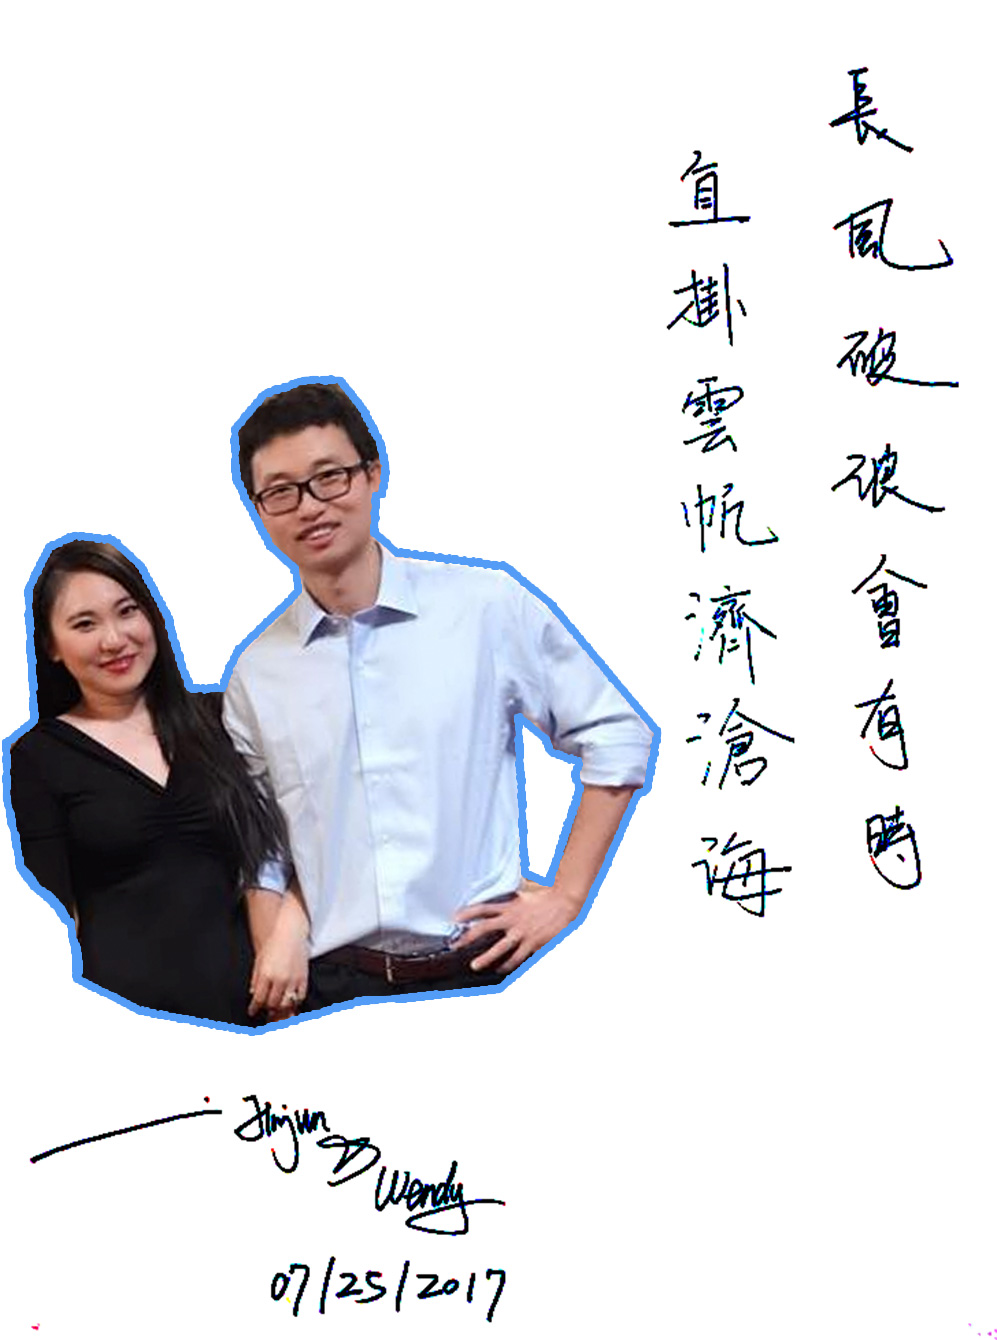 長風破浪會有時
直掛雲帆濟滄海
—Jinjun & Wendy
07/25/2017